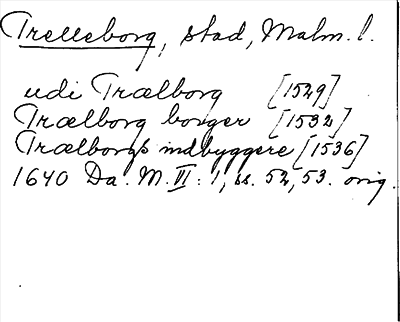 Trelleborg, stad, Malm. l.
udi Trælborg [1529]
Trælborg borger [1532]
Trælborgs indbyggere [1536]
1640 Da. M. VI: 1, ss. 52, 53. orig.